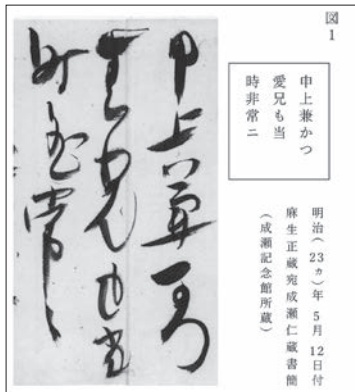 図1
申上兼かつ
愛兄も当
時非常ニ
明治(23ヵ)年5月12日付
麻生正蔵宛成瀬仁蔵書簡
(成瀬記念館所蔵)
申上兼かつ
愛兄も当
時非常ニ